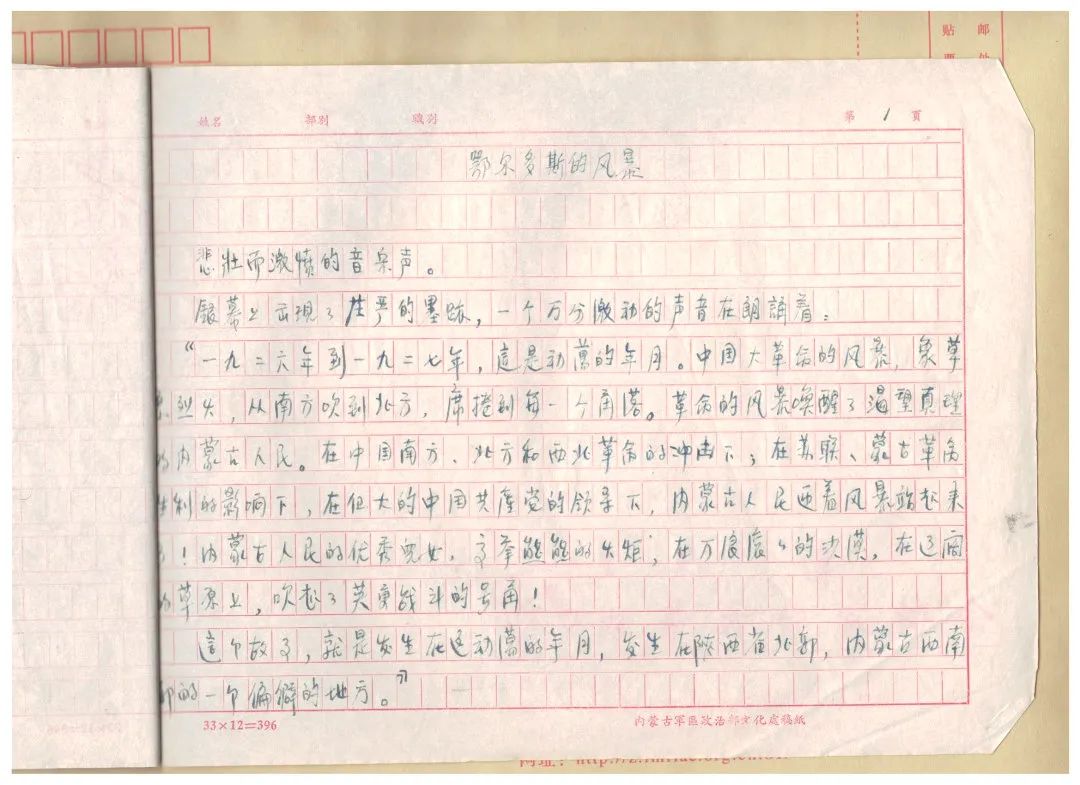 贴 邮
票 处
姓名 部别 职别 第 1 页
鄂尔多斯的风暴
悲壮而激愤的音乐声。
银幕上出现了庄严的墨跡，一个万分激动的声音在朗誦着：
“一九二六年到一九二七年，這是动荡的年月。中国大革命的风暴，象草
原烈火，从南方吹到北方，席捲到每一个角落。革命的风暴唤醒了渴望真理
的内蒙古人民。在中国南方、北方和西北革命的冲击下；在苏联、蒙古革命
胜利的影响下，在伟大的中国共産党的领导下，内蒙古人民迎着风暴站起来
了！内蒙古人民的优秀兒女，高举熊熊的火炬，在万浪滚々的沙漠，在辽阔
的草原上，吹起了英勇战斗的号角！
這个故事，就是发生在这动荡的年月，发生在陕西省北部，内蒙古西南
部的一个偏僻的地方。”
33×12=396 内蒙古軍區政治部文化處稿紙
网址：http://